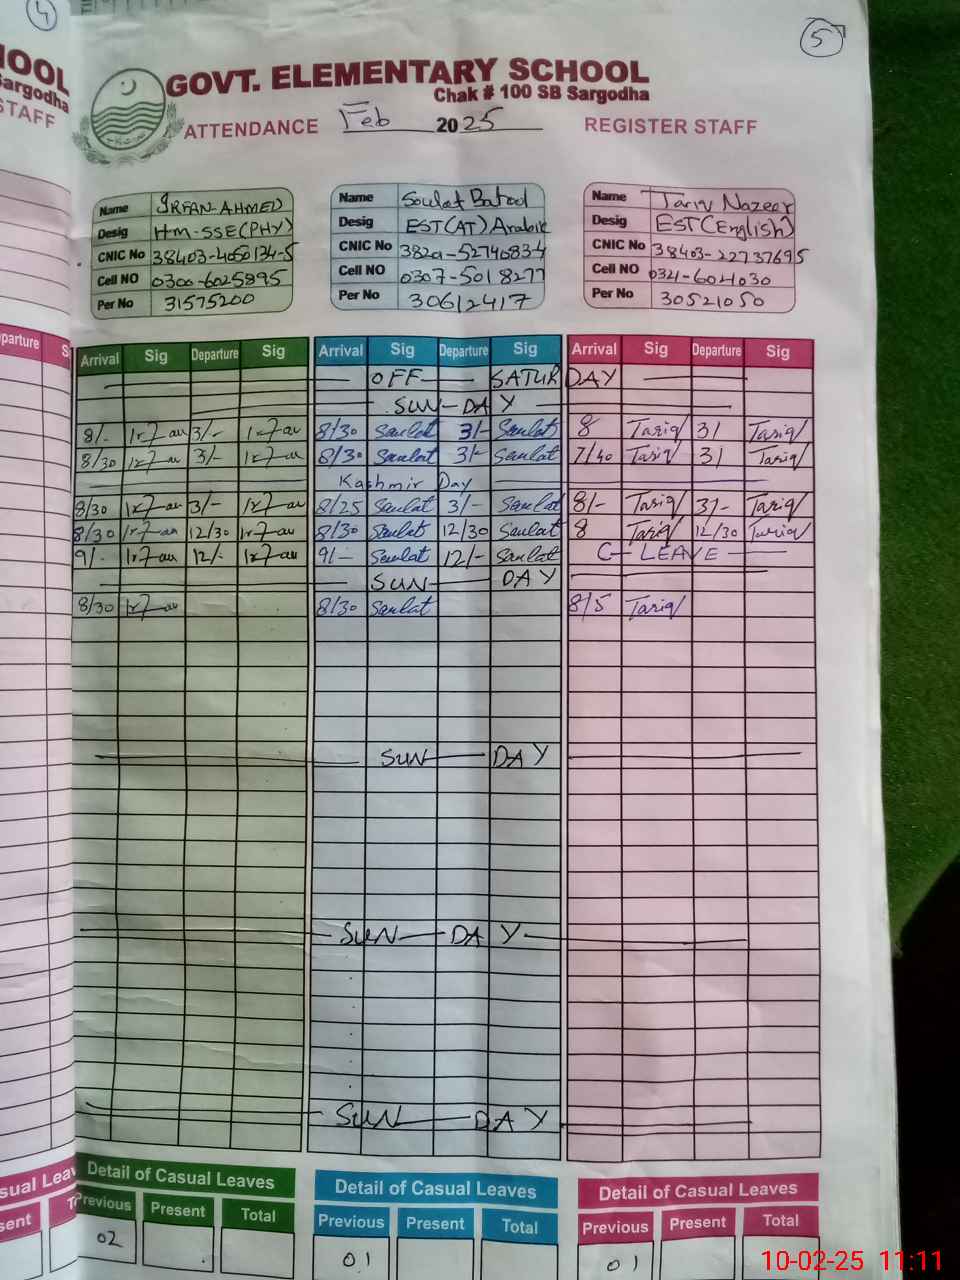 4
5
HOOL
Sargodha
STAFF
GOVT. ELEMENTARY SCHOOL
Chak # 100 SB Sargodha
ATTENDANCE Feb 2025 REGISTER STAFF
Name IRFAN-AHMED
Desig HM-SSE(PHY)
CNIC No 38403-4050134-5
Cell NO 0300-6025895
Per No 31575200
Name Soulat Batool
Desig EST(AT) Arabic
CNIC No
Cell NO 0307-5018277
Per No 30612417
Name Tariq Nazeer
Desig EST(English)
CNIC No 38403-22737695
Cell NO 0321-604030
Per No 30521050
parture S
Arrival Sig Departure Sig Arrival Sig Departure Sig Arrival Sig Departure Sig
OFF SATURDAY
SUN-DAY
8/- 3/- 8/30 Saulat 3/- Saulat 8 Tariq 3/ Tariq
8/30 3/- 8/30 Saulat 3/- Saulat 7/40 Tariq 3/ Tariq
Kashmir Day
8/30 3/- 8/25 Saulat 3/- Saulat 8/- Tariq 3/- Tariq
8/30 12/30 8/30 Saulat 12/30 Saulat 8 Tariq 12/30 Tariq
9/- 12/- 9/- Saulat 12/- Saulat C-LEAVE
SUN DAY
8/30 8/30 Saulat 8/5 Tariq
SUN DAY
SUN DAY
SUN DAY
sual Leav
sent T
Detail of Casual Leaves
Previous Present Total
02
Detail of Casual Leaves
Previous Present Total
01
Detail of Casual Leaves
Previous Present Total
01
10-02-25 11:11